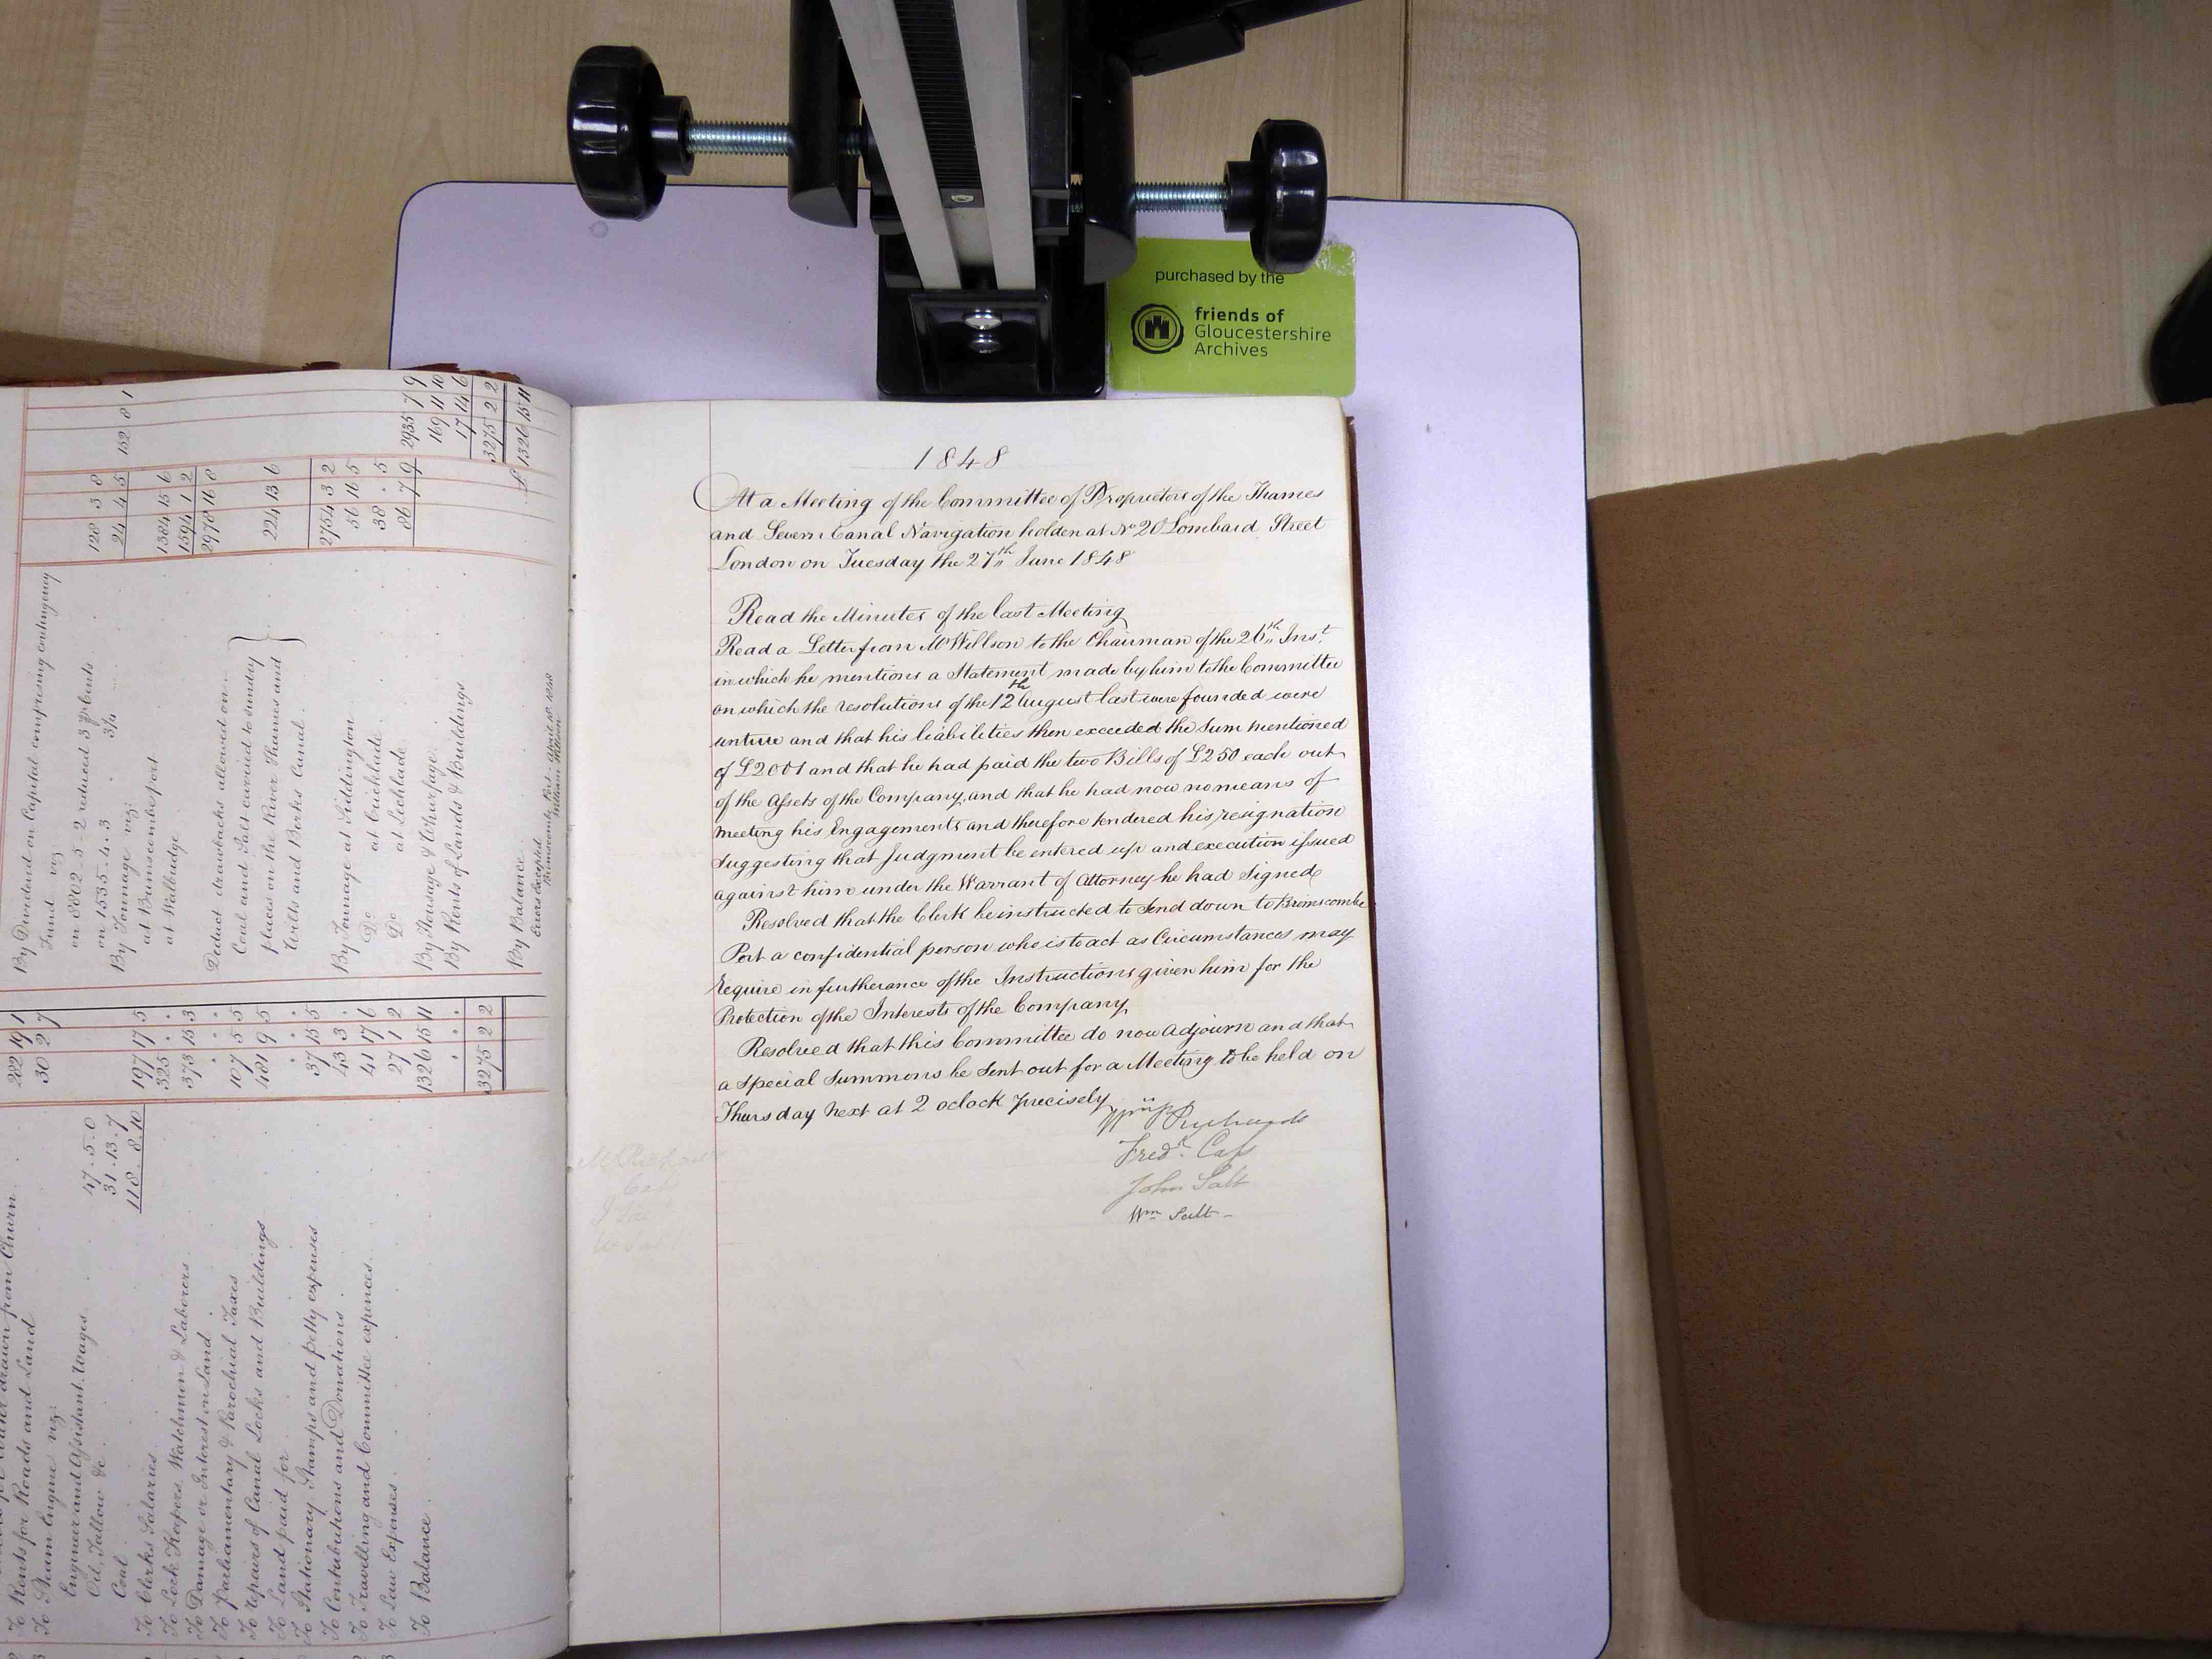 purchased by the
friends of
Gloucestershire
Archives
By Dividend on Capital comprising contingency
Fund viz:
on 8802 . 5 . 2 reduced 3 pr Cents 128 3 8
on 1535 . 4 . 3 " 3¼ 24 4 5 152 8 1
By Tonnage viz:
at Brimscombe port 1384 15 6
at Wallbridge 1594 1 2
2978 16 8
Deduct drawbacks allowed on
Coal and Salt carried to sunday
places on the River Thames and
Wilts and Berks Canal 224 13 6
2754 3 2
By Tonnage at Siddington 56 16 5
Do at Cricklade 38 . 5
Do at Lechlade 86 7 9 2935 7 9
By Housage & Wharfage 169 11 10
By Rents of Lands & Buildings 17 14 6
3275 2 2
By Balance £ 1326 15 11
Errors Excepted
Brimscomb Port April 10 1848
William Willson
drawn from Churn 282 19 1
To Rents for Roads and Land 30 2 7
To Steam Engine viz:
Engineer and Assistant Wages 47 . 5 . 0
Oil, Tallow &c 31 . 13 . 7
Coal 118 . 8 . 10 197 17 5
To Clerks Salaries 325 . .
To Lock Keepers Watchmen & Laborers 373 15 3
To Damage or Interest on Land . . .
To Parliamentary & Parochial Taxes 107 5 5
To repairs of Canal Locks and Buildings 481 9 5
To Land paid for . . .
To Stationary Stamps and petty expenses 37 15 5
To Contributions and Donations 43 3 .
To Travelling and Committee expences 41 17 6
To Law Expenses 27 1 2
To Balance 1326 15 11
3275 2 2
1848
At a Meeting of the Committee of Proprietors of the Thames
and Severn Canal Navigation holden at No 20 Lombard Street
London on Tuesday the 27th June 1848
Read the Minutes of the last Meeting
Read a Letter from Mr Willson to the Chairman of the 26th Inst.
in which he mentions a Statement made by him to the Committee
on which the resolutions of the 12th August last were founded were
untrue and that his liabilities then exceeded the Sum mentioned
of £2001 and that he had paid the two Bills of £250 each out
of the Assets of the Company, and that he had now no means of
meeting his Engagements and therefore tendered his resignation
suggesting that Judgment be entered up and execution issued
against him under the Warrant of Attorney he had Signed
Resolved that the Clerk be instructed to Send down to Brimscombe
Port a confidential person who is to act as Circumstances may
require in furtherance of the Instructions given him for the
Protection of the Interests of the Company
Resolved that this Committee do now Adjourn and that
a Special Summons be Sent out for a Meeting to be held on
Thursday next at 2 oclock precisely
Wm P Richards
Fredk. Cass
John Salt
Wm Salt